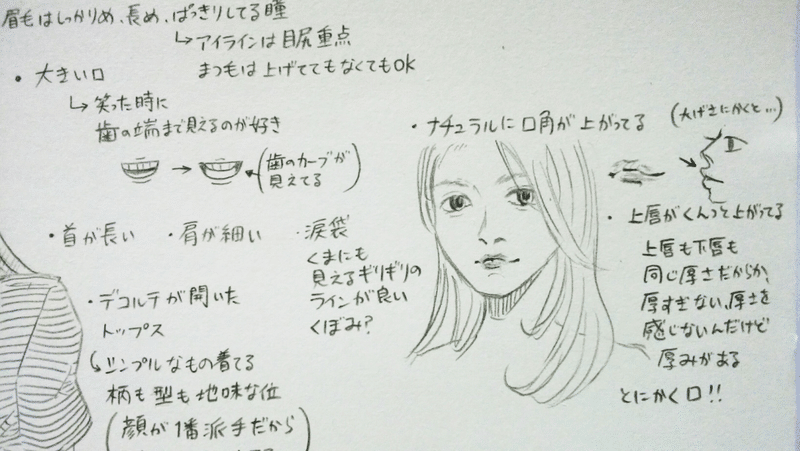 眉毛はしっかりめ、長め、ぱっきりしてる瞳
↳アイラインは目尻重点
まつ毛は上げててもなくてもOK
・大きい口
↳笑った時に
歯の端まで見えるのが好き
→
(歯のカーブが
見えてる)
・首が長い
・肩が細い
・涙袋
くまにも
見えるギリギリの
ラインが良い
くぼみ?
・デコルテが開いた
トップス
↳シンプルなもの着てる
柄も型も地味な位
(顔が1番派手だから
・ナチュラルに口角が上がってる
(大げさにかくと…)
・上唇がくんっと上がってる
上唇も下唇も
同じ厚さだからか、
厚すぎない、厚さを
感じないんだけど
厚みがある
とにかく口!!